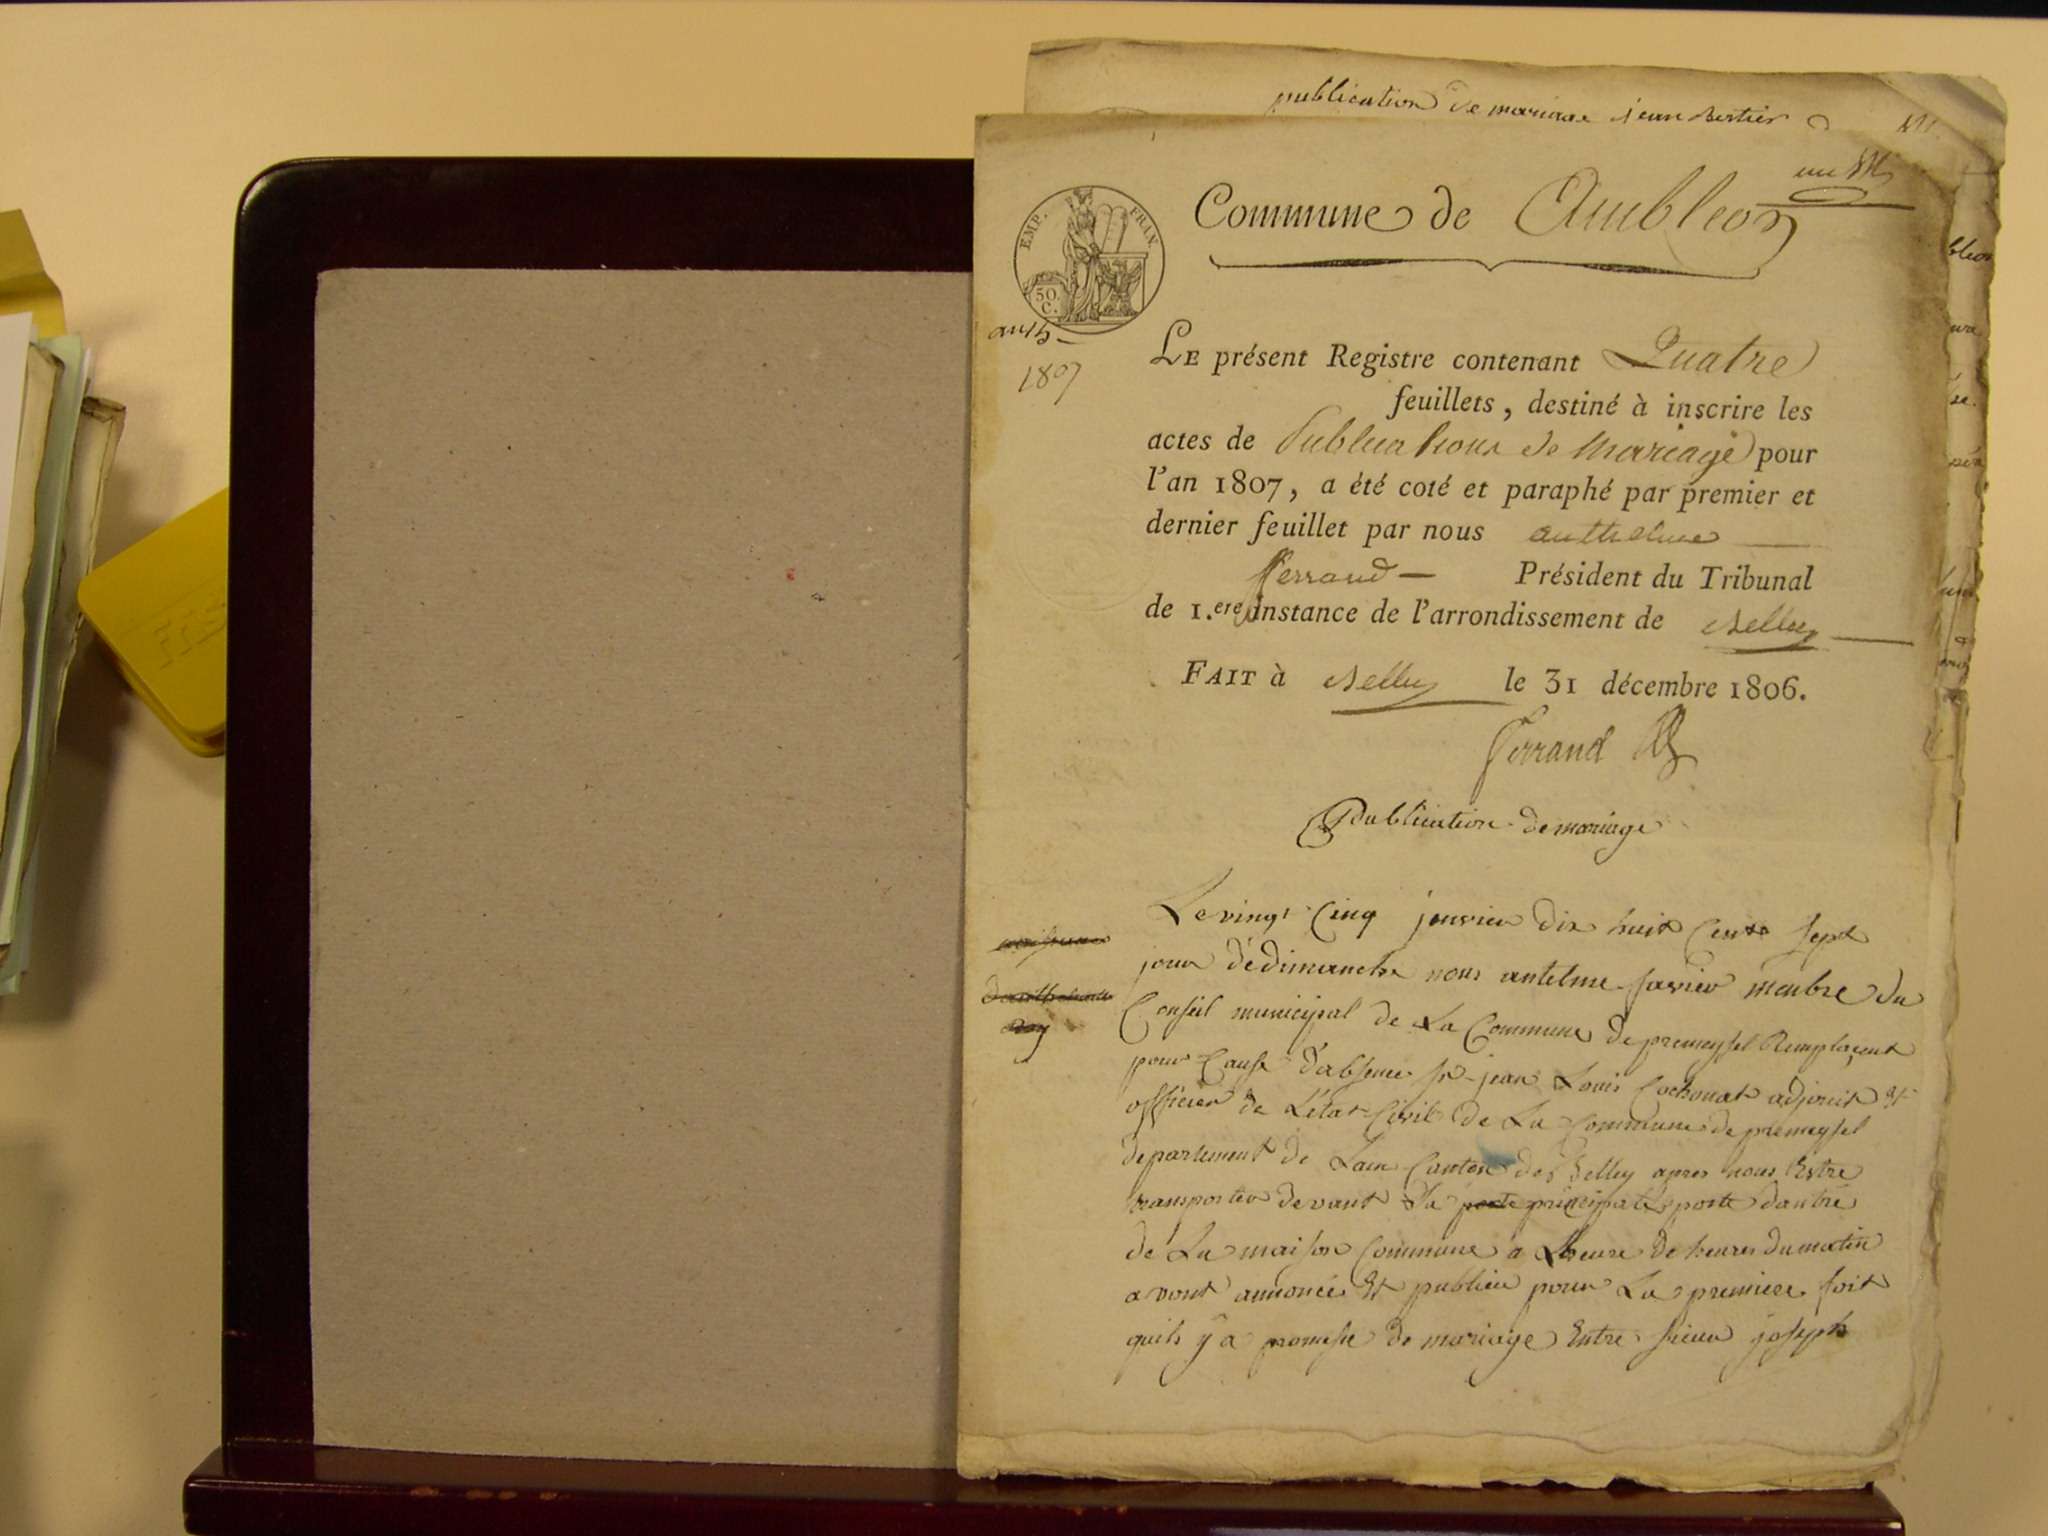 publication de mariage jean Bertier
un
Commune de Ambleon
EMP. FRAN.
50.
C.
1807
LE présent Registre contenant Quatre
feuillets, destiné à inscrire les
actes de Publications de Mariage pour
l'an 1807, a été coté et paraphé par premier et
dernier feuillet par nous anthelme
ferrand — Président du Tribunal
de 1.ere instance de l'arrondissement de Belley
FAIT à Belley le 31 décembre 1806.
Ferrand
Publication de mariage
Le vingt Cinq janvier dix huit Cents sept
jour dédimanche nous antelme favrier menbre du
Conseil municipal de La Commune de premeysel Remplaçent
pour Cause d'absence sr jean Louis Cochonat adjoint et
officier de L'état Civil de La Commune de premeysel
departement de Lain Canton de Belley apres nous Estre
transporter devant La porte principalle porte dantré
de La maison Commune a Lheure de heures du matin
avont annoncé Et publieu pour La premiere foit
quils y a promesse de mariage Entre sieur joseph